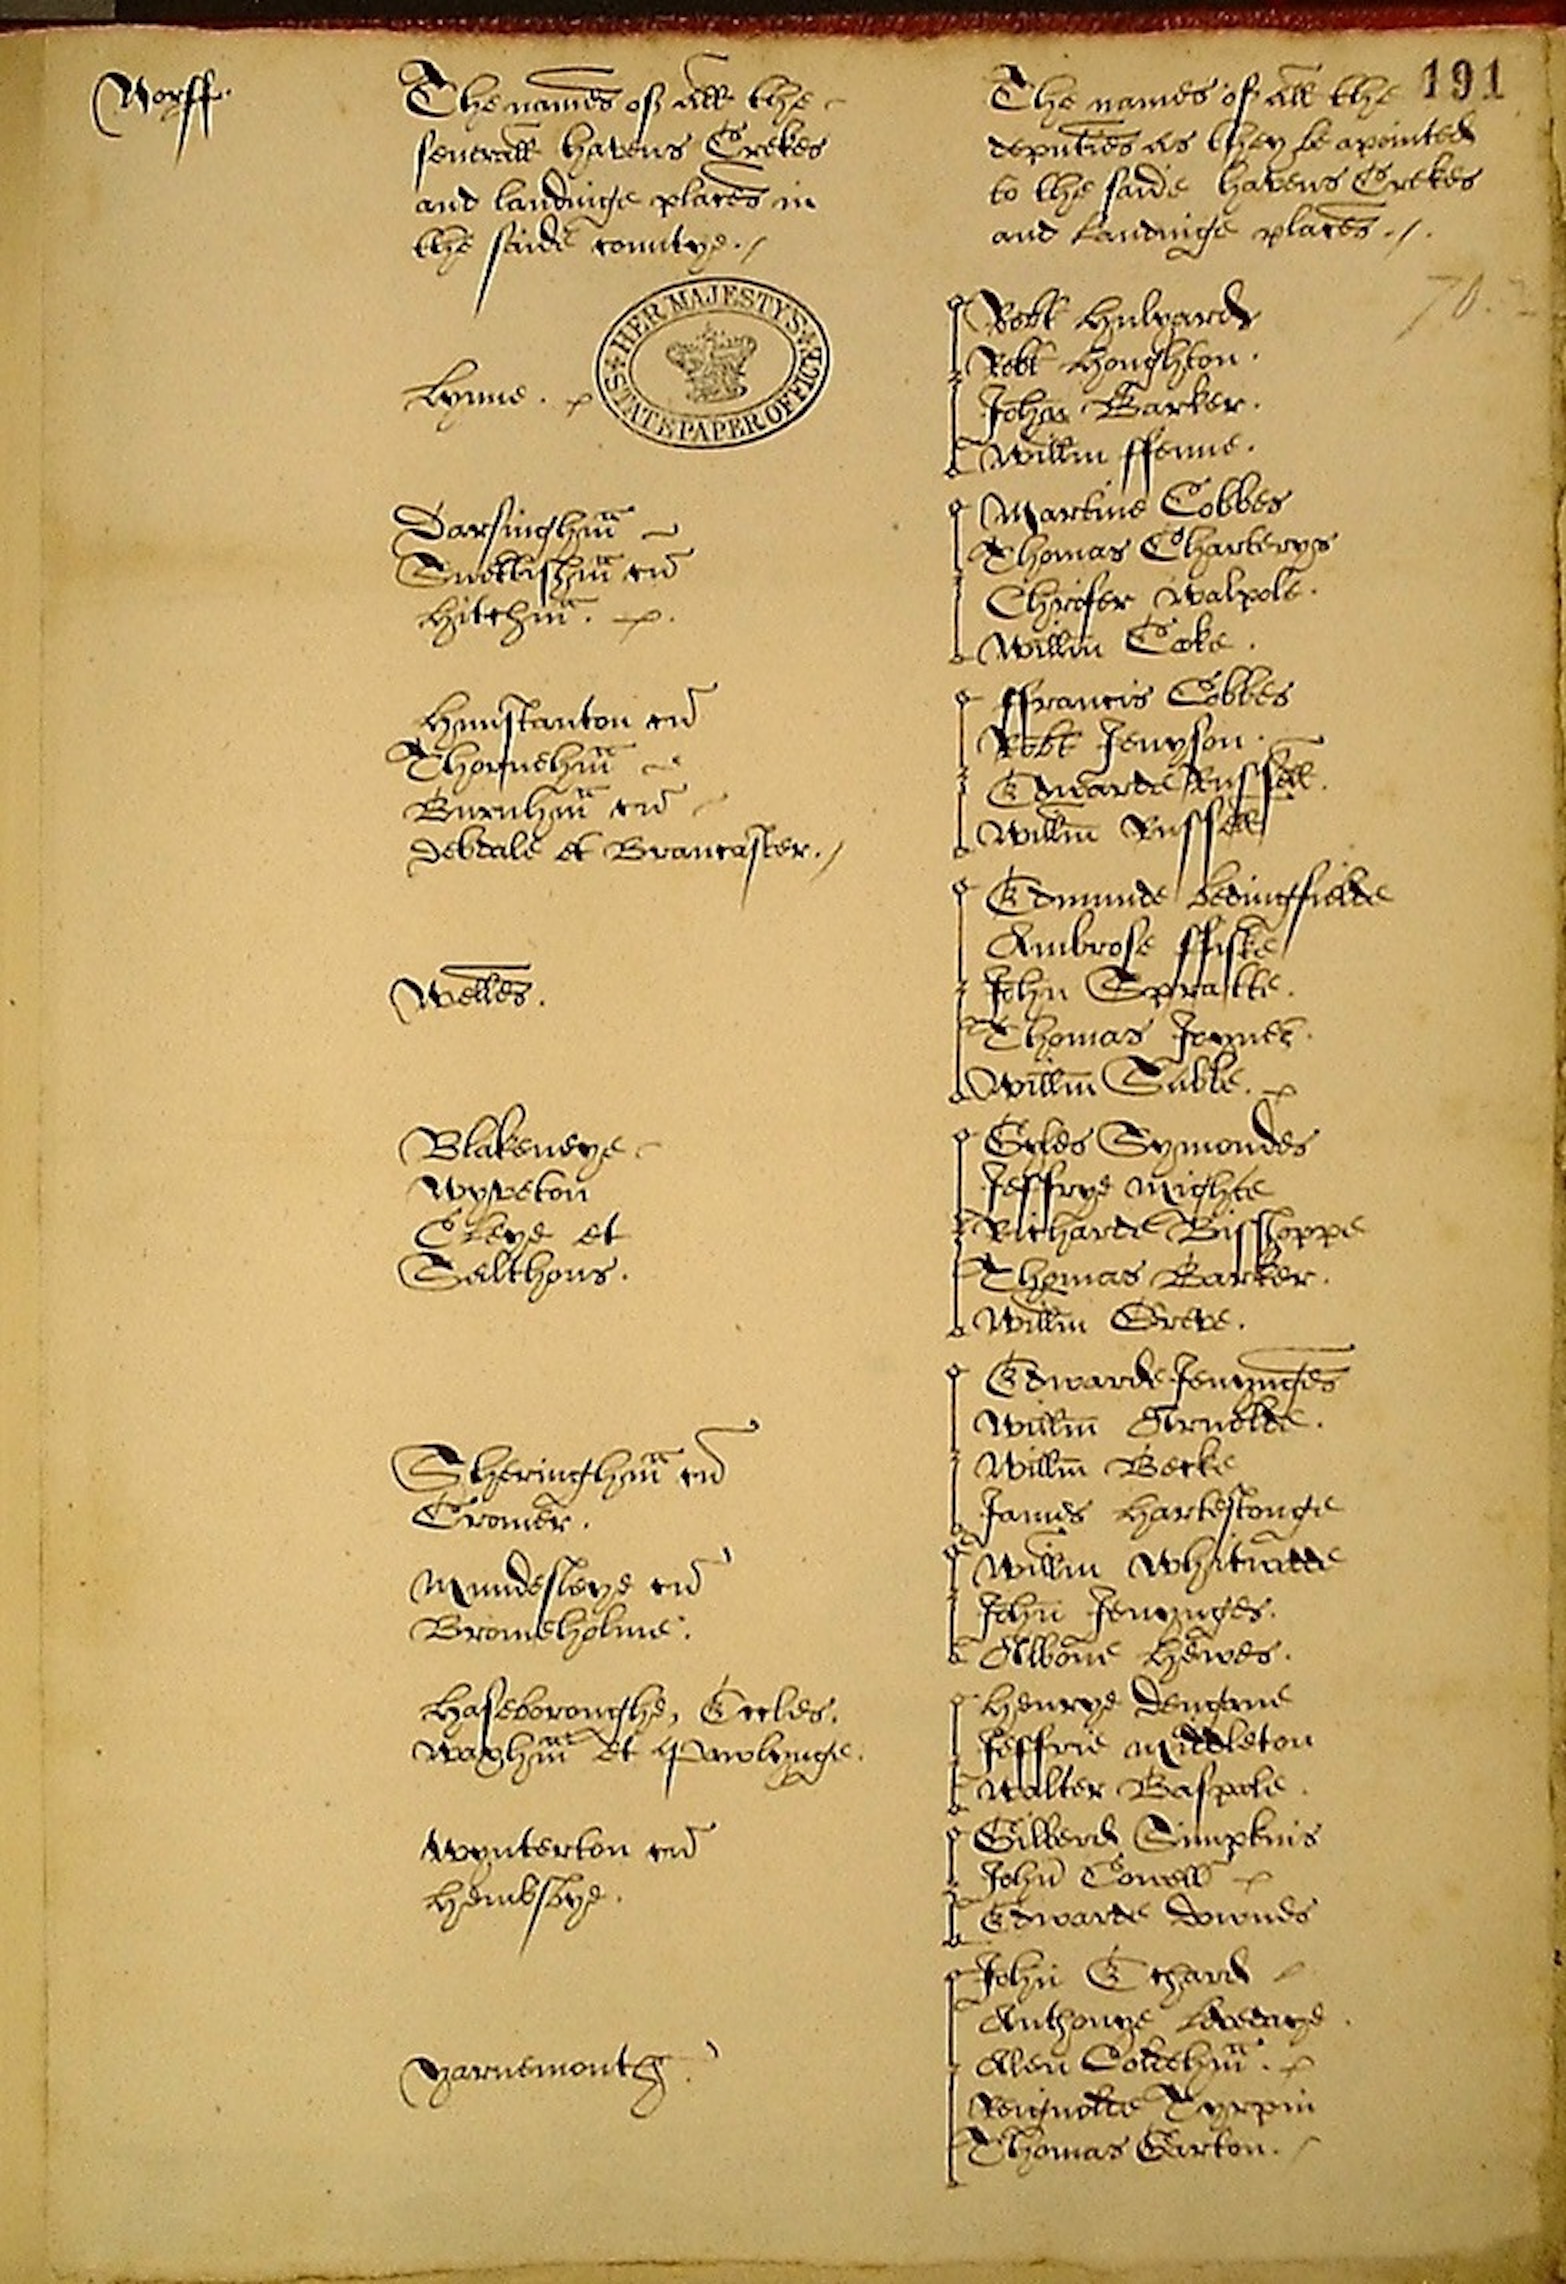 Norff.
The names of all the
severall havens Crekes
and landinge places in
the saide countye./
The names of all the
deputies as they be apointed
to the saide havens Crekes
and Landinge places./.
191
70.
HER MAJESTY'S
STATE PAPER OFFICE
Lynne.
Robt Hulyard
Robt Houghton.
John Barker.
Willm ffenne.
Darsinghm
Snettishm cū
Hitchm.
Martine Cobbes
Thomas Charterys
Chrofer Walpole.
Willm Coke.
Hunstanton cū
Thornehm
Burnhm cū
Debdale et Brancaster./
ffrancis Cobbes
Robt Jenyson.
Edwarde Russell.
Willm Russell
Welles.
Edmunde Bedingfielde
Ambrose ffiske
John Spratte.
Thomas Joynes.
Willm Sable.
Blakeneye
Wyveton
Cleye et
Salthous.
Gyles Symondes
Jeffrye Mighte
Richarde Bisshoppe
Thomas Barker.
Willm Greve.
Sheringhm cū
Cromer.
Edwarde Jenynges
Willm Arnolde.
Willm Becke
James Harkestonge
Mundesleye cū
Bromeholme.
Willm Whitwelle
John Jenynges.
Albone Hewes.
Haseboroughe, Eccles.
Waxhm et Pawlynge.
Henrye Dengane
Jeffrie Middleton
Walter Baspole.
Wynterton cū
Hembslye.
Gilberd Simpkins
John Cowell
Edwarde Downes
Yarnemouth.
John Echard
Anthonye Lovedaye.
Alen Coldehm.
Reignolde Tyrpin
Thomas Garton.